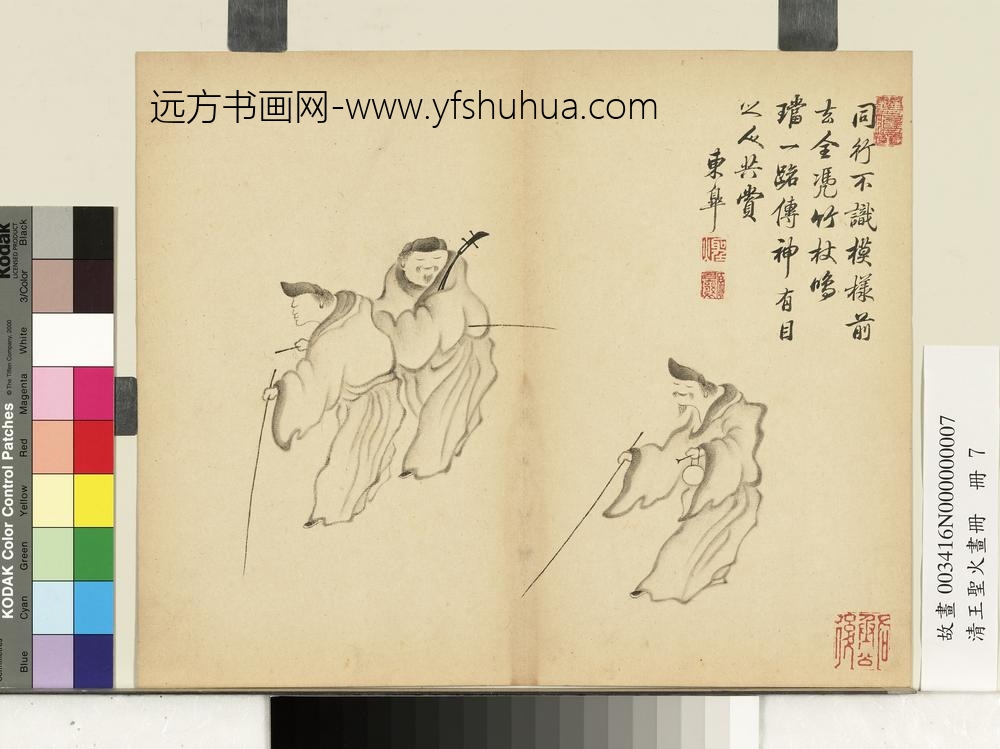 远方书画网-www.yfshuhua.com
同行不識模樣前
去全凴竹杖鳴
璫一路傳神有目
之人共賞
東皐
故畫 003416N000000007
清王聖火畫冊 冊 7
KODAK Color Control Patches
Kodak
LICENSED PRODUCT
© The Tiffen Company, 2000
Black
3/Color
White
Magenta
Red
Yellow
Green
Cyan
Blue